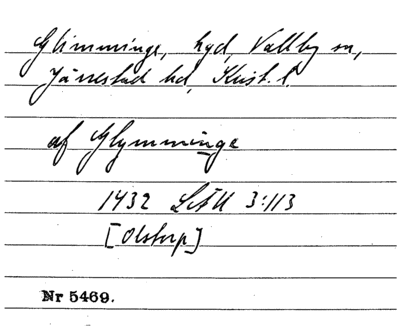 Glimminge, hgd, Vallby sn,
Järrestad hd, Krist. l.
af Glymminge
1432 LÄU 3:113
[Olstorp]
Nr 5469.